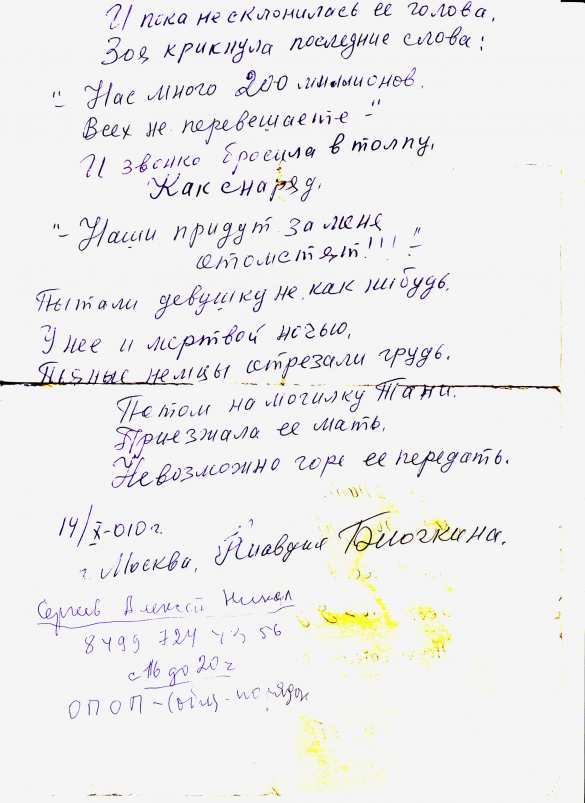 И пока не склонилась ее голова,
Зоя крикнула последние слова:
"- Нас много 200 миллионов.
Всех не перевешаете -"
И звонко бросила в толпу,
Как снаряд.
"- Наши придут за меня
отомстят!!! -"
Пытали девушку не как нибудь.
У нее и мертвой ночью,
Пьяные немцы отрезали грудь.
Потом на могилку Тани.
Приезжала ее мать.
Невозможно горе ее передать.
14/X-010 г.
г. Москва, Клавдия Блочкина.
Сергеев Алексей Никол
8499 724 43 56
с 16 до 20 ч
ОПОП -